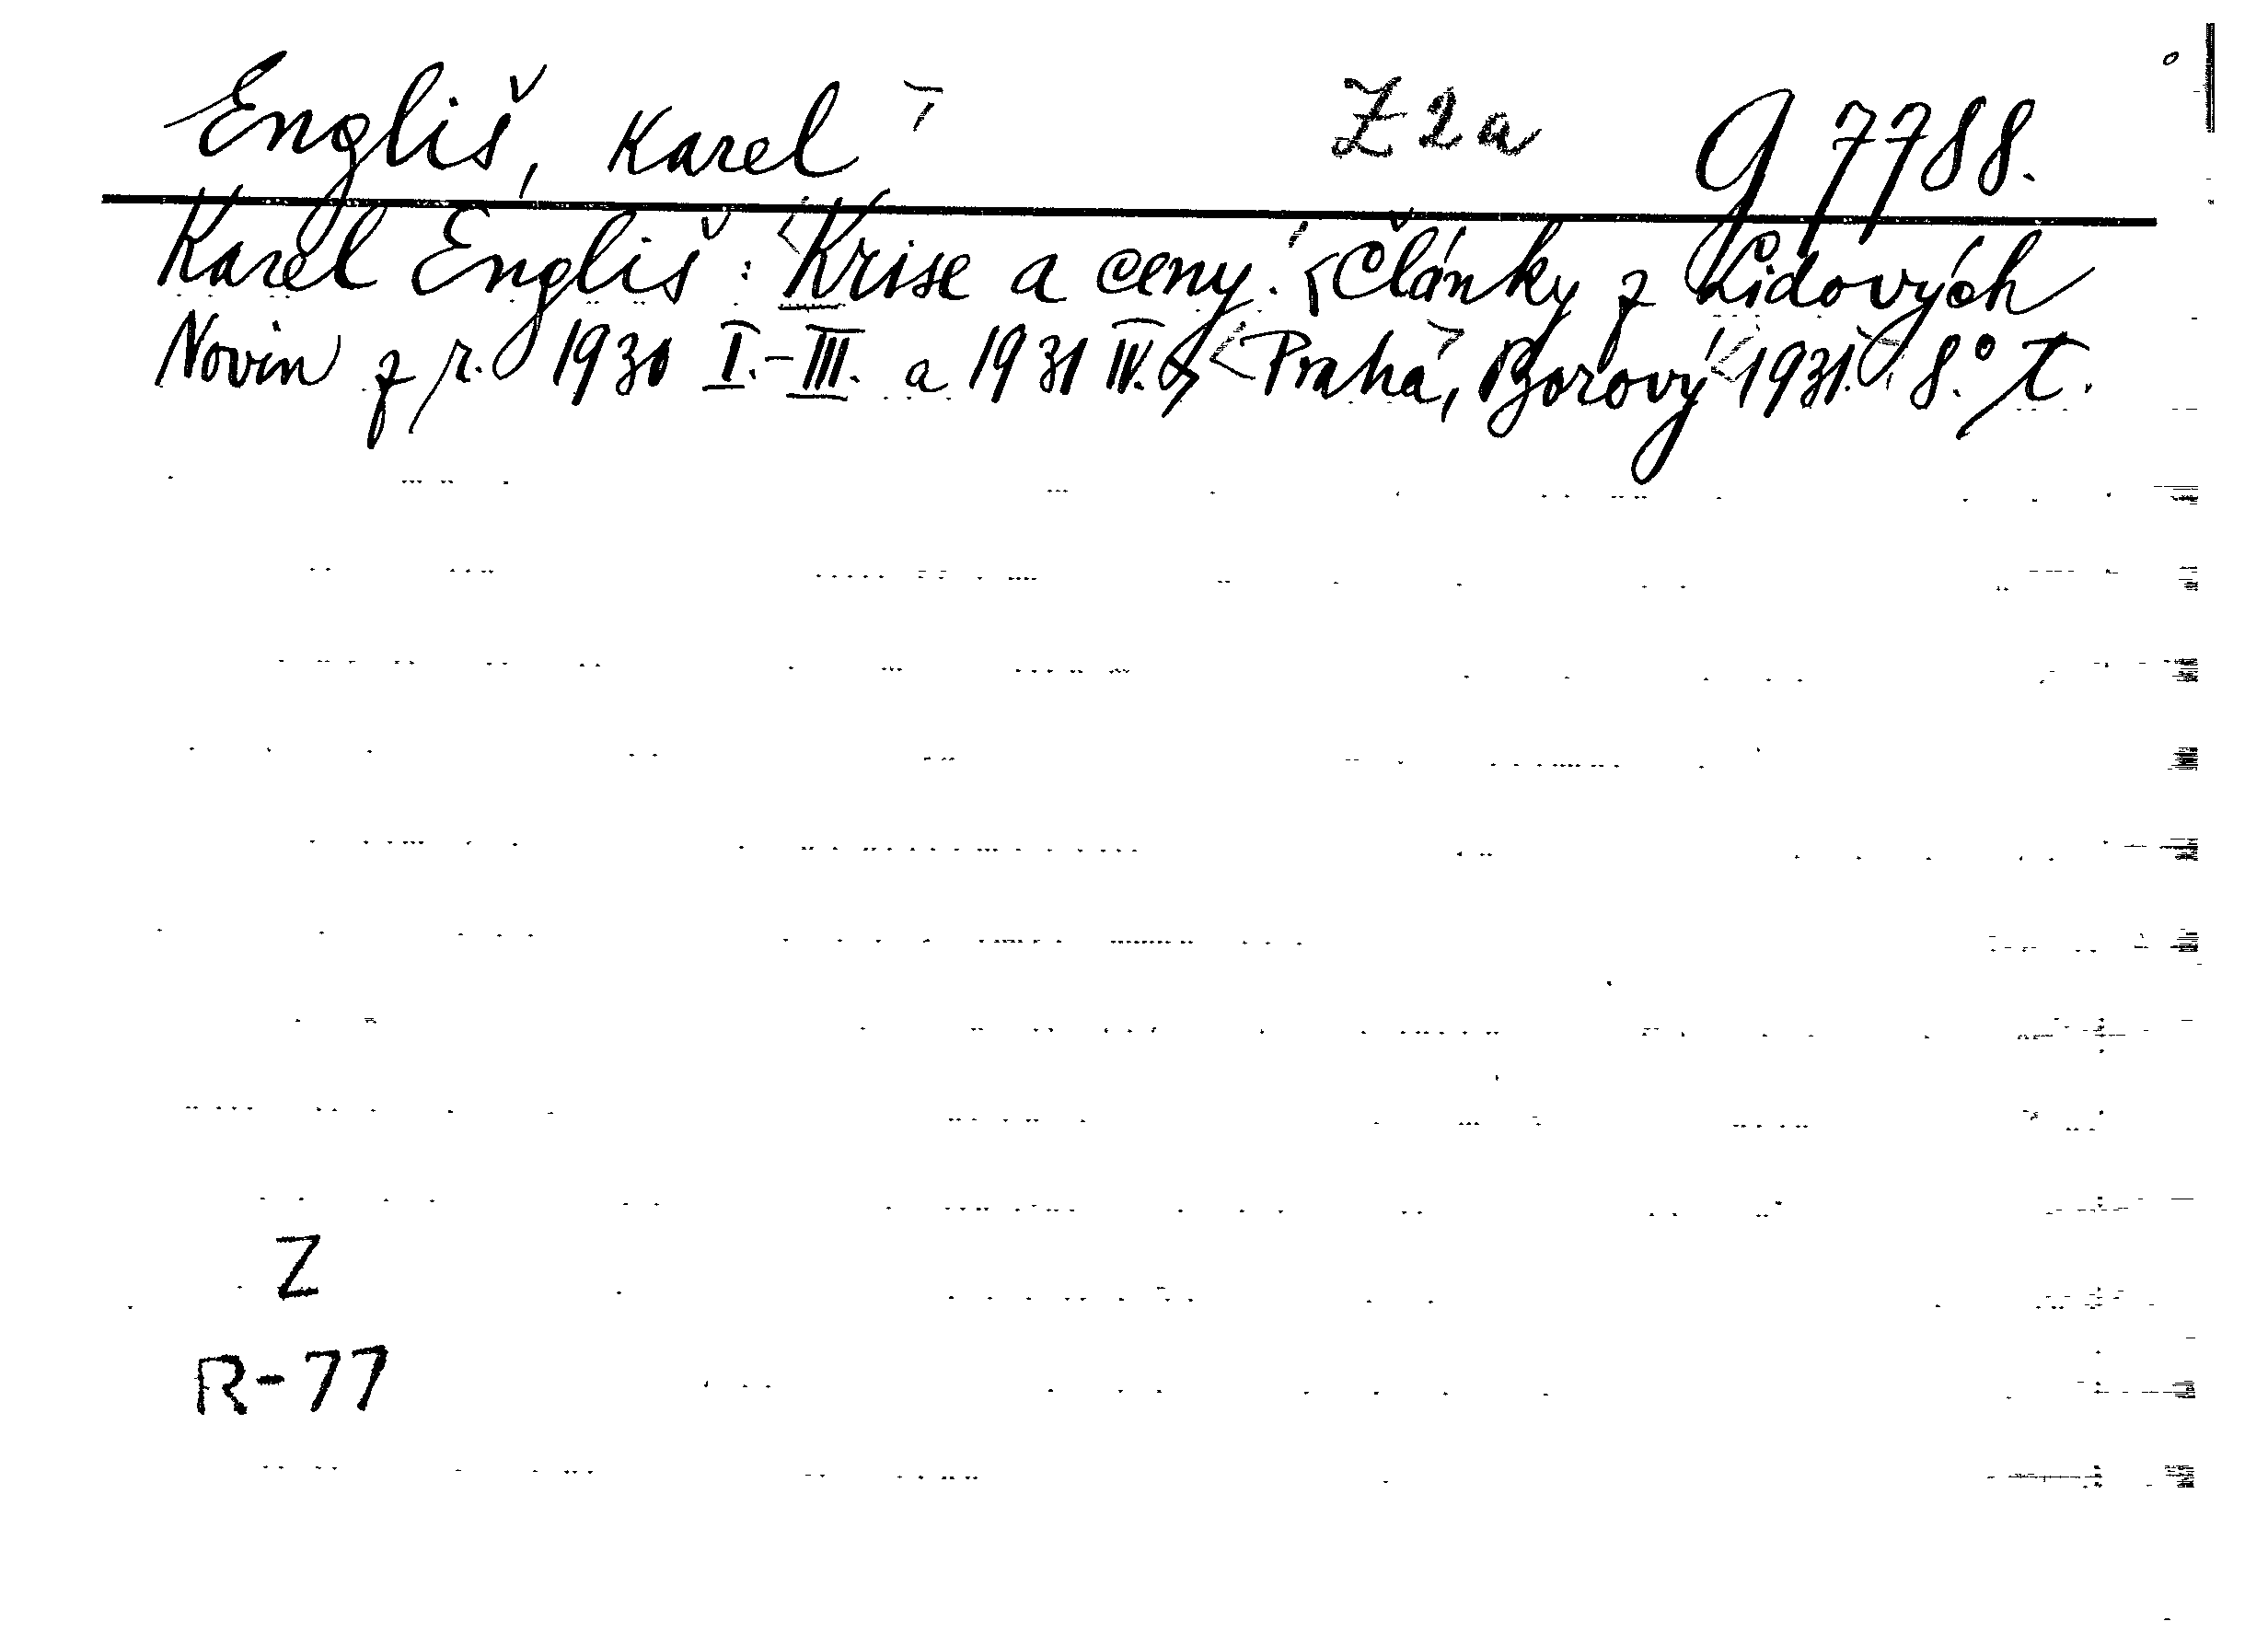 Engliš, Karel Z 2 a g 7788.
Karel Engliš: Krise a ceny. (Články z Lidových
Novin z r. 1930 I.-III. a 1931 IV.) Praha, Borový 1931. 8.° T.
Z
R-77